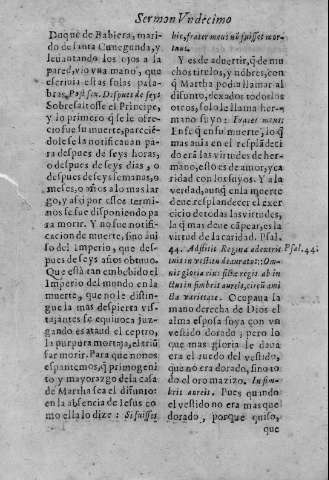 Sermon Vndecimo
Duque de Babiera, mari-
do de santa Cunegunda, y
leuantando los ojos a la
pared, vio vna mano, que
escriuia estas solas pala-
bras, Post sex. Despues de seys.
Sobresaltosse el Principe,
y lo primero q̃ se le ofre-
cio fue su muerte, parecié-
dole se la notificauan pa-
ra despues de seys horas,
o despues de seys dias, o
despues de seys semanas, o
meses, o años a lo mas lar-
go, y assi por estos termi-
nos se fue disponiendo pa
ra morir. Y no fue notifi-
cacion de muerte, sino aui
so del Imperio, que des-
pues de seys años obtuuo.
Que està tan embebido el
Imperio del mundo en la
muerte, que no le distin-
gue la mas despierta vis-
ta, antes se equiuoca juz-
gando es ataud el ceptro,
la purpura mortaja, el triũ
far morir. Para que no nos
espantemos, q̃ primogeni
to y mayorazgo de la casa
de Martha sea el difunto:
en la absencia de Iesus co
mo ella lo dize: Si fuisses
hic, frater meus nõ fuisset mor-
tuus.
Y es de aduertir, q̃ de mu
chos titulos, y nõbres, con
q̃ Martha podia llamar al
difunto, dexados todos los
otros, solo le llama her-
mano suyo: Frater meus:
En se q̃ en su muerte, lo q̃
mas auia en el resplãdeci
do erã las virtudes de her-
mano, esto es de amor, y ca
ridad con los suyos. Y a la
verdad, aunq̃ en la muerte
deue resplandecer el exer
cicio de todas las virtudes,
la q̃ mas deue cãpear, es la
virtud de la caridad. Psal.
44. Adstitit Regina à dextris
tuis in vestitu deaurato: Om-
nis gloria eius filiæ regis ab in
tus in fimbriis aureis, circũ ami
cta varietate. Ocupaua la
mano derecha de Dios el
alma esposa suya con vn
vestido dorado; pero lo
que mas gloria le daua
era el ruedo del vestido,
que no era dorado, sino to
do el oro mazizo. In fim-
briis aureis. Pues quando
el vestido no era mas que
dorado, porque quiso,
que
Psal. 44.